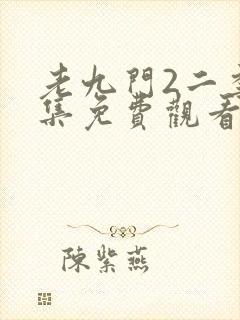 老九門2二季
集免費觀看
陳紫燕